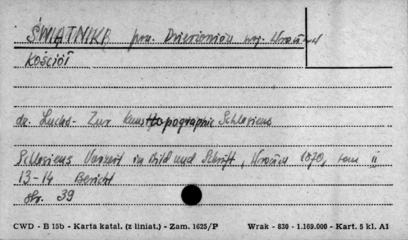 ŚWIĄTNIKI pow. Dzierżoniów woj. Wrocław
KOŚCIÓŁ
dr. Luchs - Zur Kunsttopographie Schlesiens
Schlesiens Vorzeit in Bild und Schrift, Wrocław 1870, tom II
13-14 Bericht
Str. 39
CWD - B 15b - Karta katal. (z liniat.) - Zam. 1625/P Wrak - 830 - 1.169.000 - Kart. 5 kl. A1